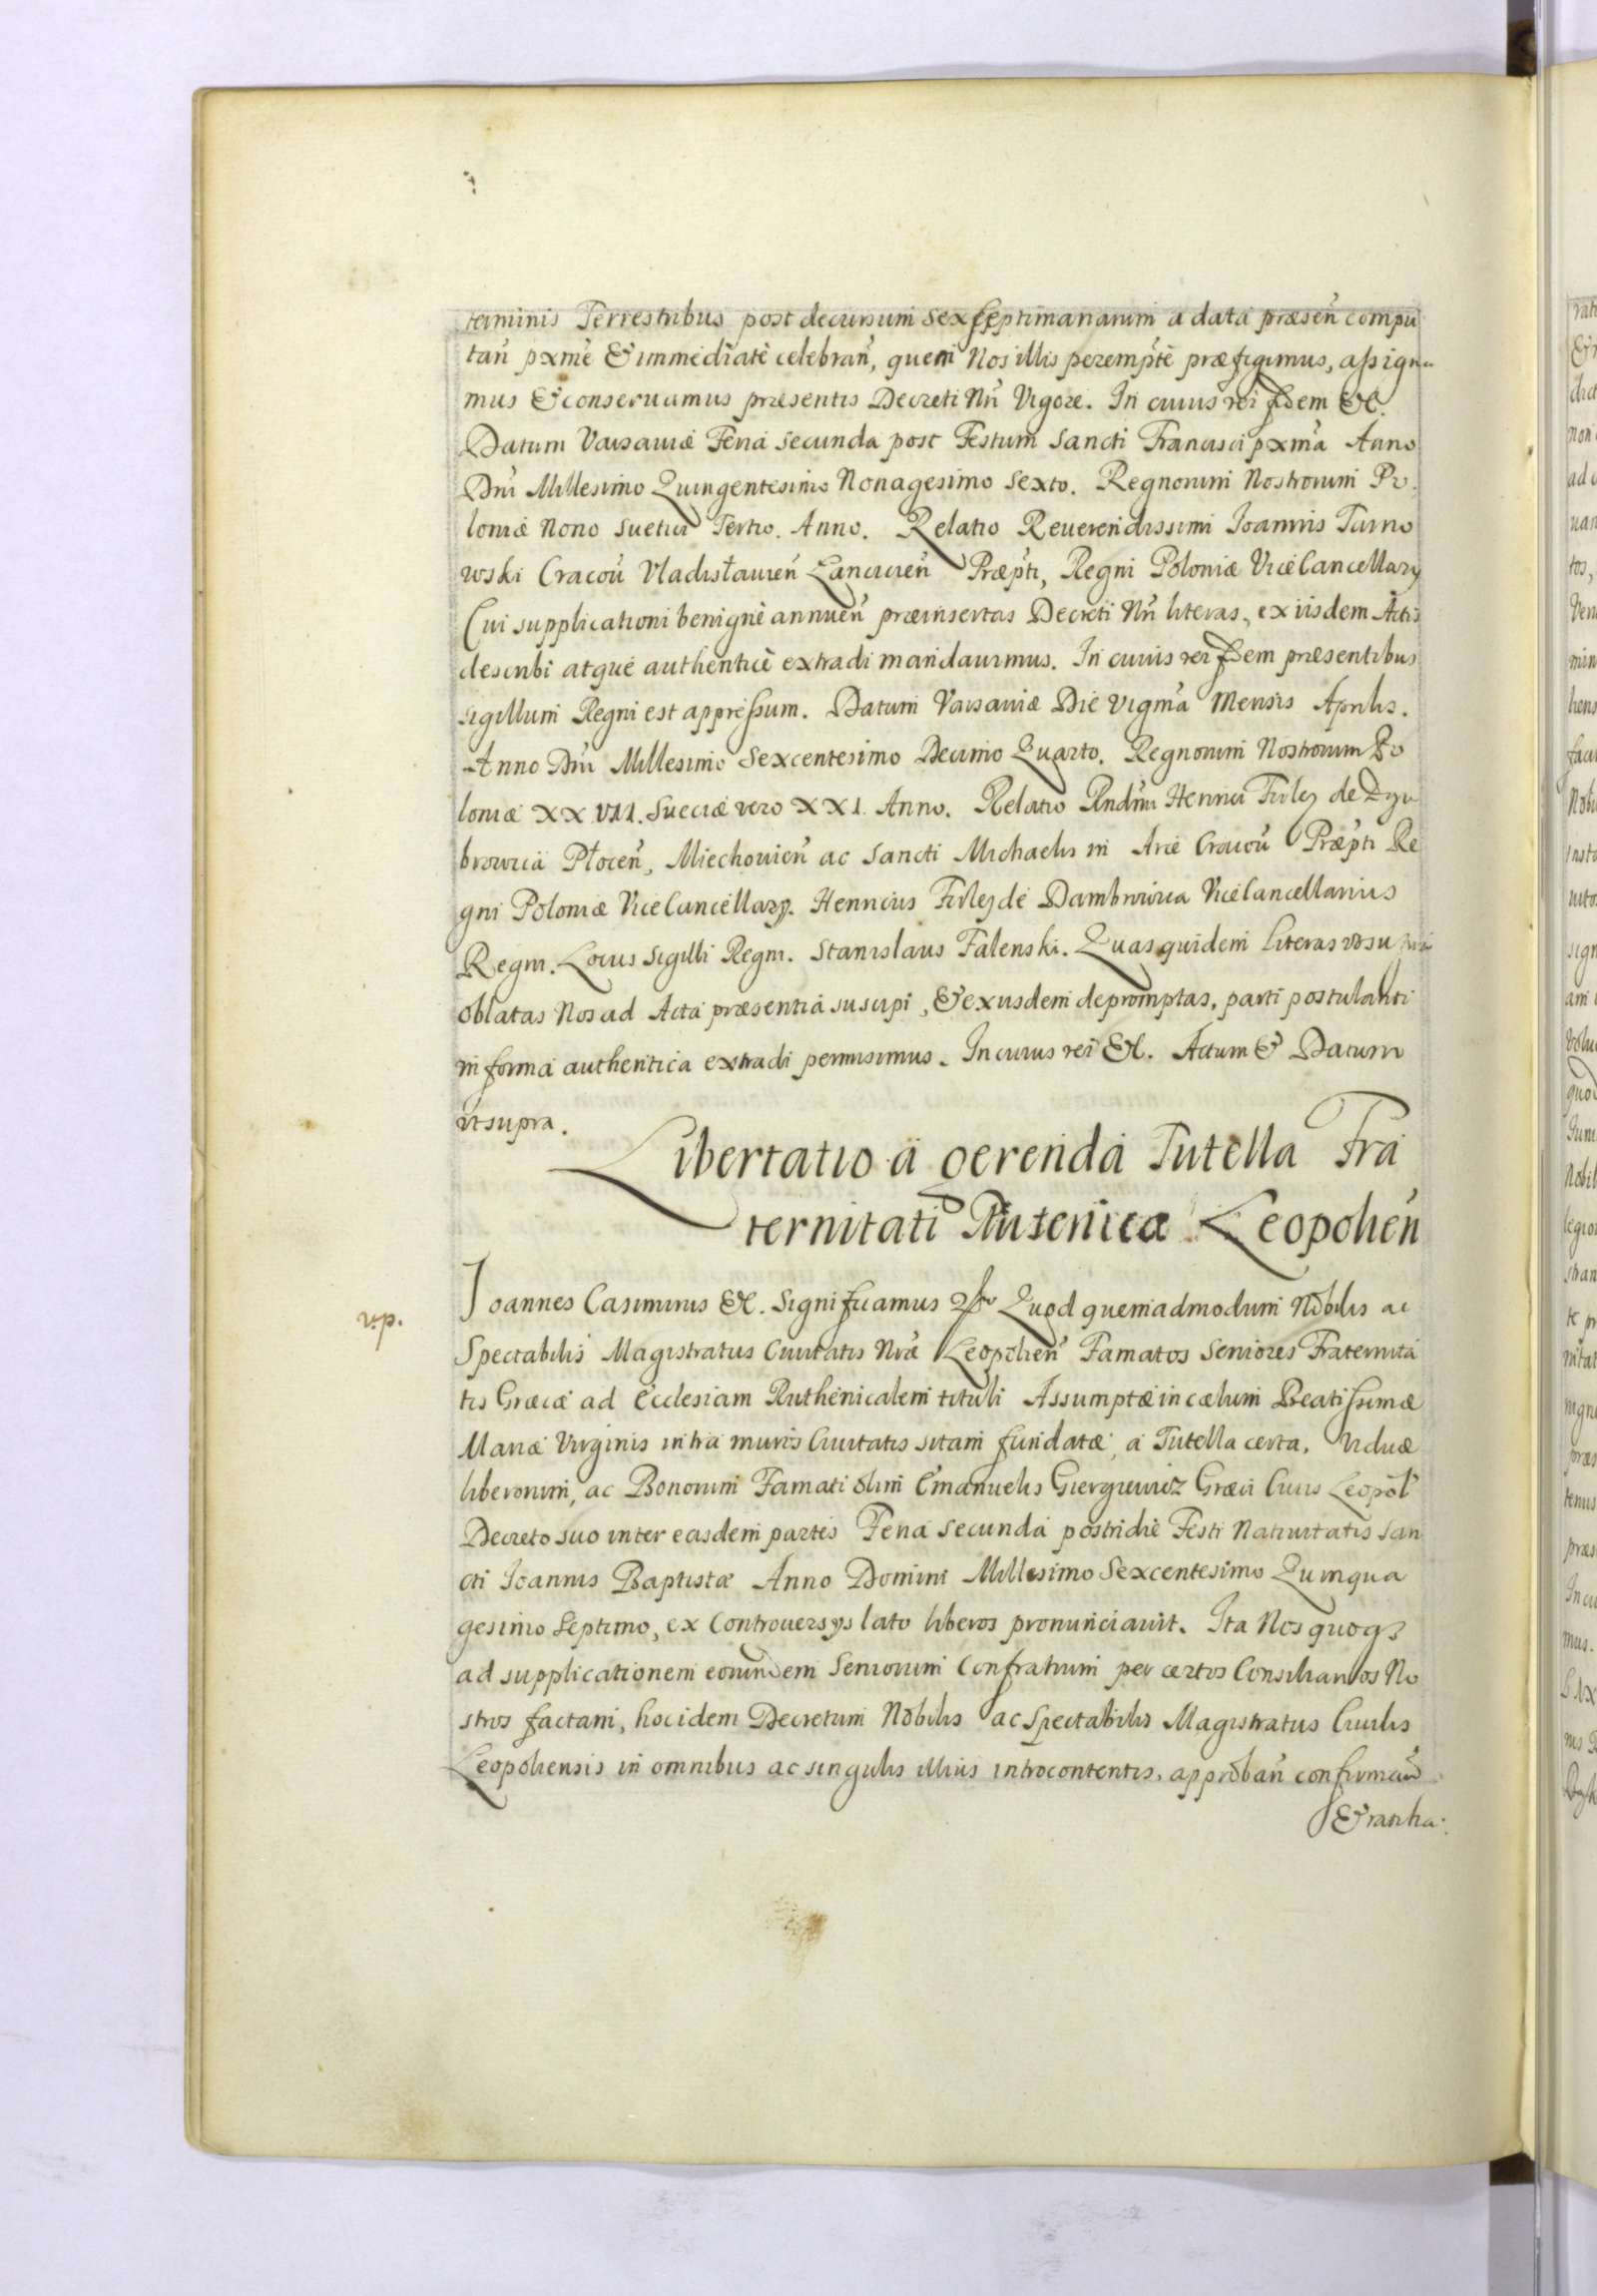 terminis Terrestribus post decursum sex septimanarum a data præsen̄ compu
tan̄ pxme & immediatè celebran̄, quem Nos illis peremptè præfigimus, assigna
mus & conseruamus præsentis Decreti Nri Vigore. In cuius rei fidem &c.
Datum Varsaviæ Feria secunda post Festum Sancti Francisci pxma Anno
Dni Millesimo Quingentesimo Nonagesimo Sexto. Regnorum Nostrorum Po
loniæ Nono Suetiæ Tertio. Anno. Relatio Reuerendissimi Ioannis Tarno
wski Cracou Vladislauien̄ Lancicien̄ Præpti, Regni Poloniæ ViceCancellarij
Cui supplicationi benignè annuen̄ præinsertas Decreti Nri literas, ex iisdem Actis
describi atque authenticè extradi mandauimus. In cuius rei fidem præsentibus
sigillum Regni est appressum. Datum Varsaviæ Die vigma Mensis Aprilis.
Anno Dni Millesimo Sexcentesimo Decimo Quarto. Regnorum Nostrorum Po
loniæ XXVII. Sueciæ vero XXI Anno. Relatio Rndmi Henrici Firley de Dąm
browica Płocen̄, Miechouien̄ ac Sancti Michaelis in Arce Cracou Præpti Re
gni Poloniæ ViceCancellarij. Henricus Firley de Dambrowica ViceCancellarius
Regni. Locus Sigilli Regni. Stanislaus Falenski. Quas quidem Literas ut supra
oblatas Nos ad Acta præsentia suscipi, & ex iisdem depromptas, parti postulanti
in forma authentica extradi permisimus. In cuius rei &c. Actum & Datum
ut supra.
Libertatio à gerenda Tutella Fra
ternitati Rutenicæ Leopolien̄
v.p.
Ioannes Casimirus &c. Significamus Quod quemadmodum Nobilis ac
Spectabilis Magistratus Ciuitatis Nræ Leopolien̄ Famatos Seniores Fraternita
tis Græcæ ad Ecclesiam Ruthenicalem tituli Assumptæ in cælum Beatissimæ
Mariæ Virginis intra muros Ciuitatis sitam fundatæ, a Tutella certa, Viduæ
liberorum, ac Bonorum Famati olim Emanuelis Giergiewicz Græci Ciuis Leopol
Decreto suo inter easdem partes Feria secunda postridie Festi Natiuitatis San
cti Ioannis Baptistæ Anno Domini Millesimo Sexcentesimo Quinqua
gesimo Septimo, ex Controuersijs lato liberos pronunciauit. Ita Nos quoq3
ad supplicationem eorundem Seniorum Confratrum per certos Consiliarios No
stros factam, hoc idem Decretum Nobilis ac Spectabilis Magistratus Ciuilis
Leopoliensis in omnibus ac singulis illius introcontentis, approban̄ confirman̄
& ratiha